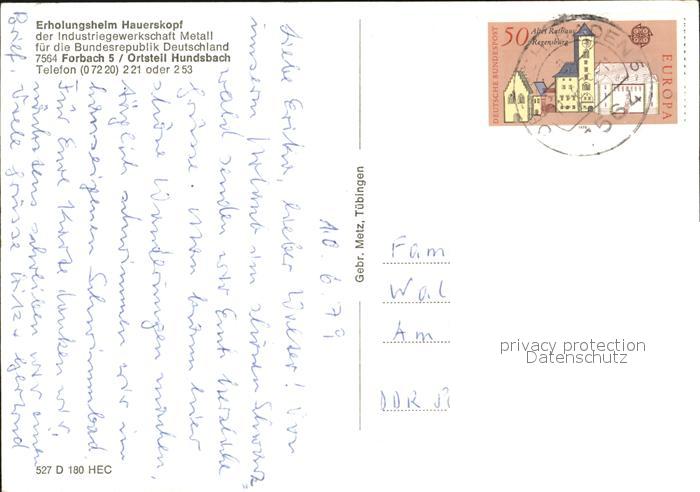 Erholungsheim Hauerskopf
der Industriegewerkschaft Metall
für die Bundesrepublik Deutschland
7564 Forbach 5 / Ortsteil Hundsbach
Telefon (0 72 20) 2 21 oder 2 53
10.6.79
Liebe Erika, lieber Walter! Von
unserm Urlaub im schönen Schwarz-
wald senden wir Euch herzliche
Grüsse. Man kann hier
schöne Wanderungen machen,
täglich schwimmen wir im
hauseigenen Schwimmbad.
Für Eure Karte danken wir,
nächstens schreiben wir einen
Brief. Viele Grüsse Gertrud
527 D 180 HEC
Gebr. Metz, Tübingen
DEUTSCHE BUNDESPOST
50
Altes Rathaus
Regensburg
EUROPA
1978
Fam
Wal
Am
DDR
privacy protection
Datenschutz